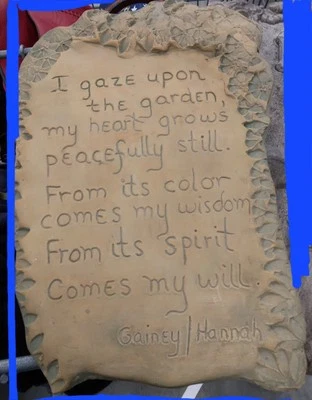 I gaze upon
the garden,
my heart grows
peacefully still.
From its color
comes my wisdom
From its spirit
Comes my will.
Gainey/Hannah